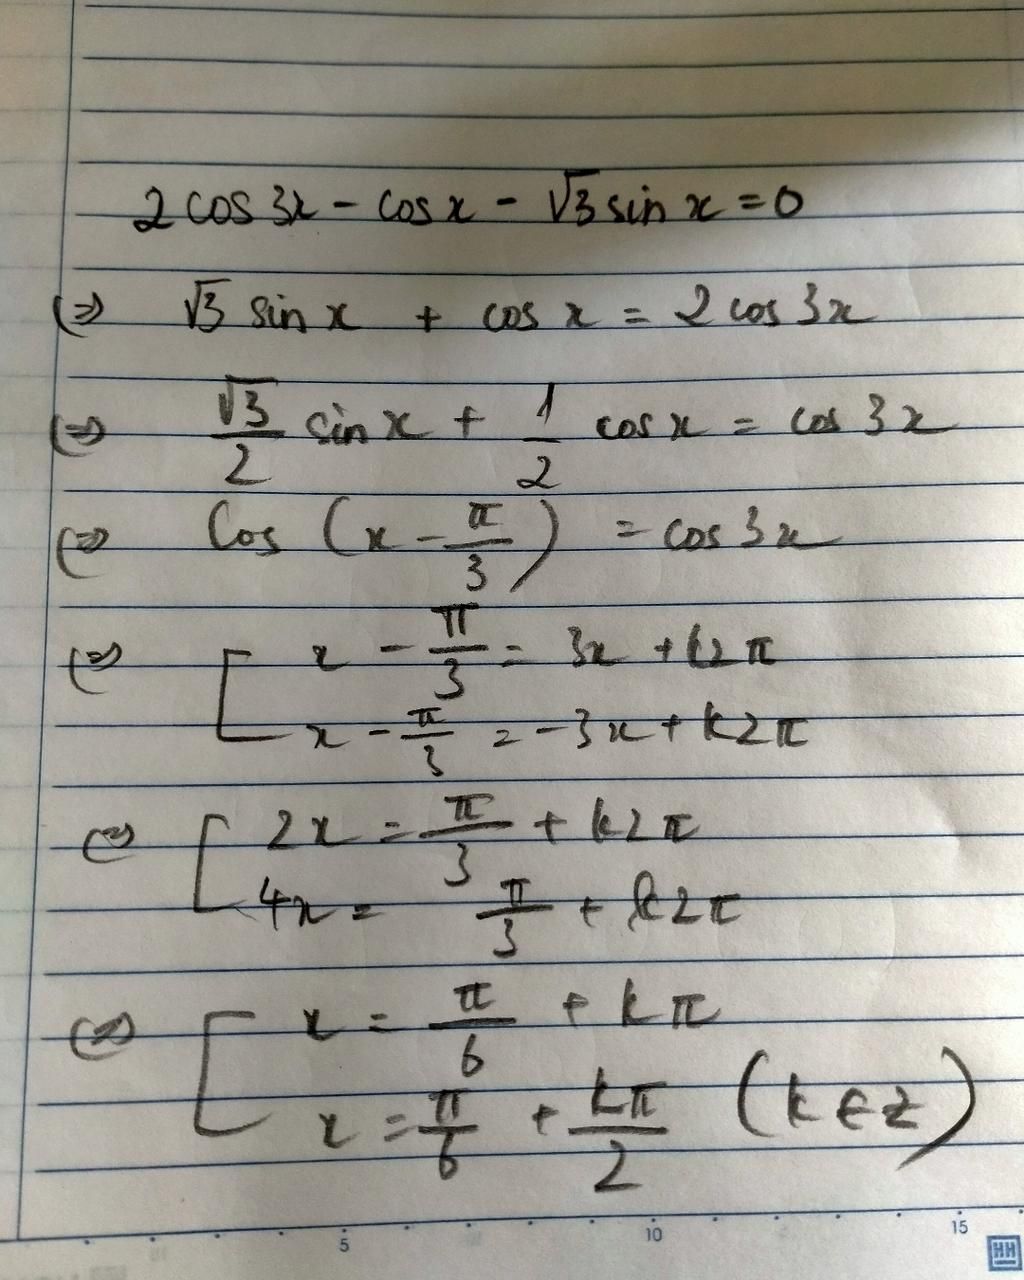 2 cos 3x - cos x - √3 sin x = 0
(=) √3 sin x + cos x = 2 cos 3x
(=) √3/2 sin x + 1/2 cos x = cos 3x
(=) Cos (x - π/3) = cos 3x
(=) [ x - π/3 = 3x + k2π
x - π/3 = -3x + k2π
(=) [ 2x = π/3 + k2π
4x = π/3 + k2π
(=) [ x = π/6 + kπ
x = π/6 + kπ/2 (k ∈ z)
5 10 15
HH